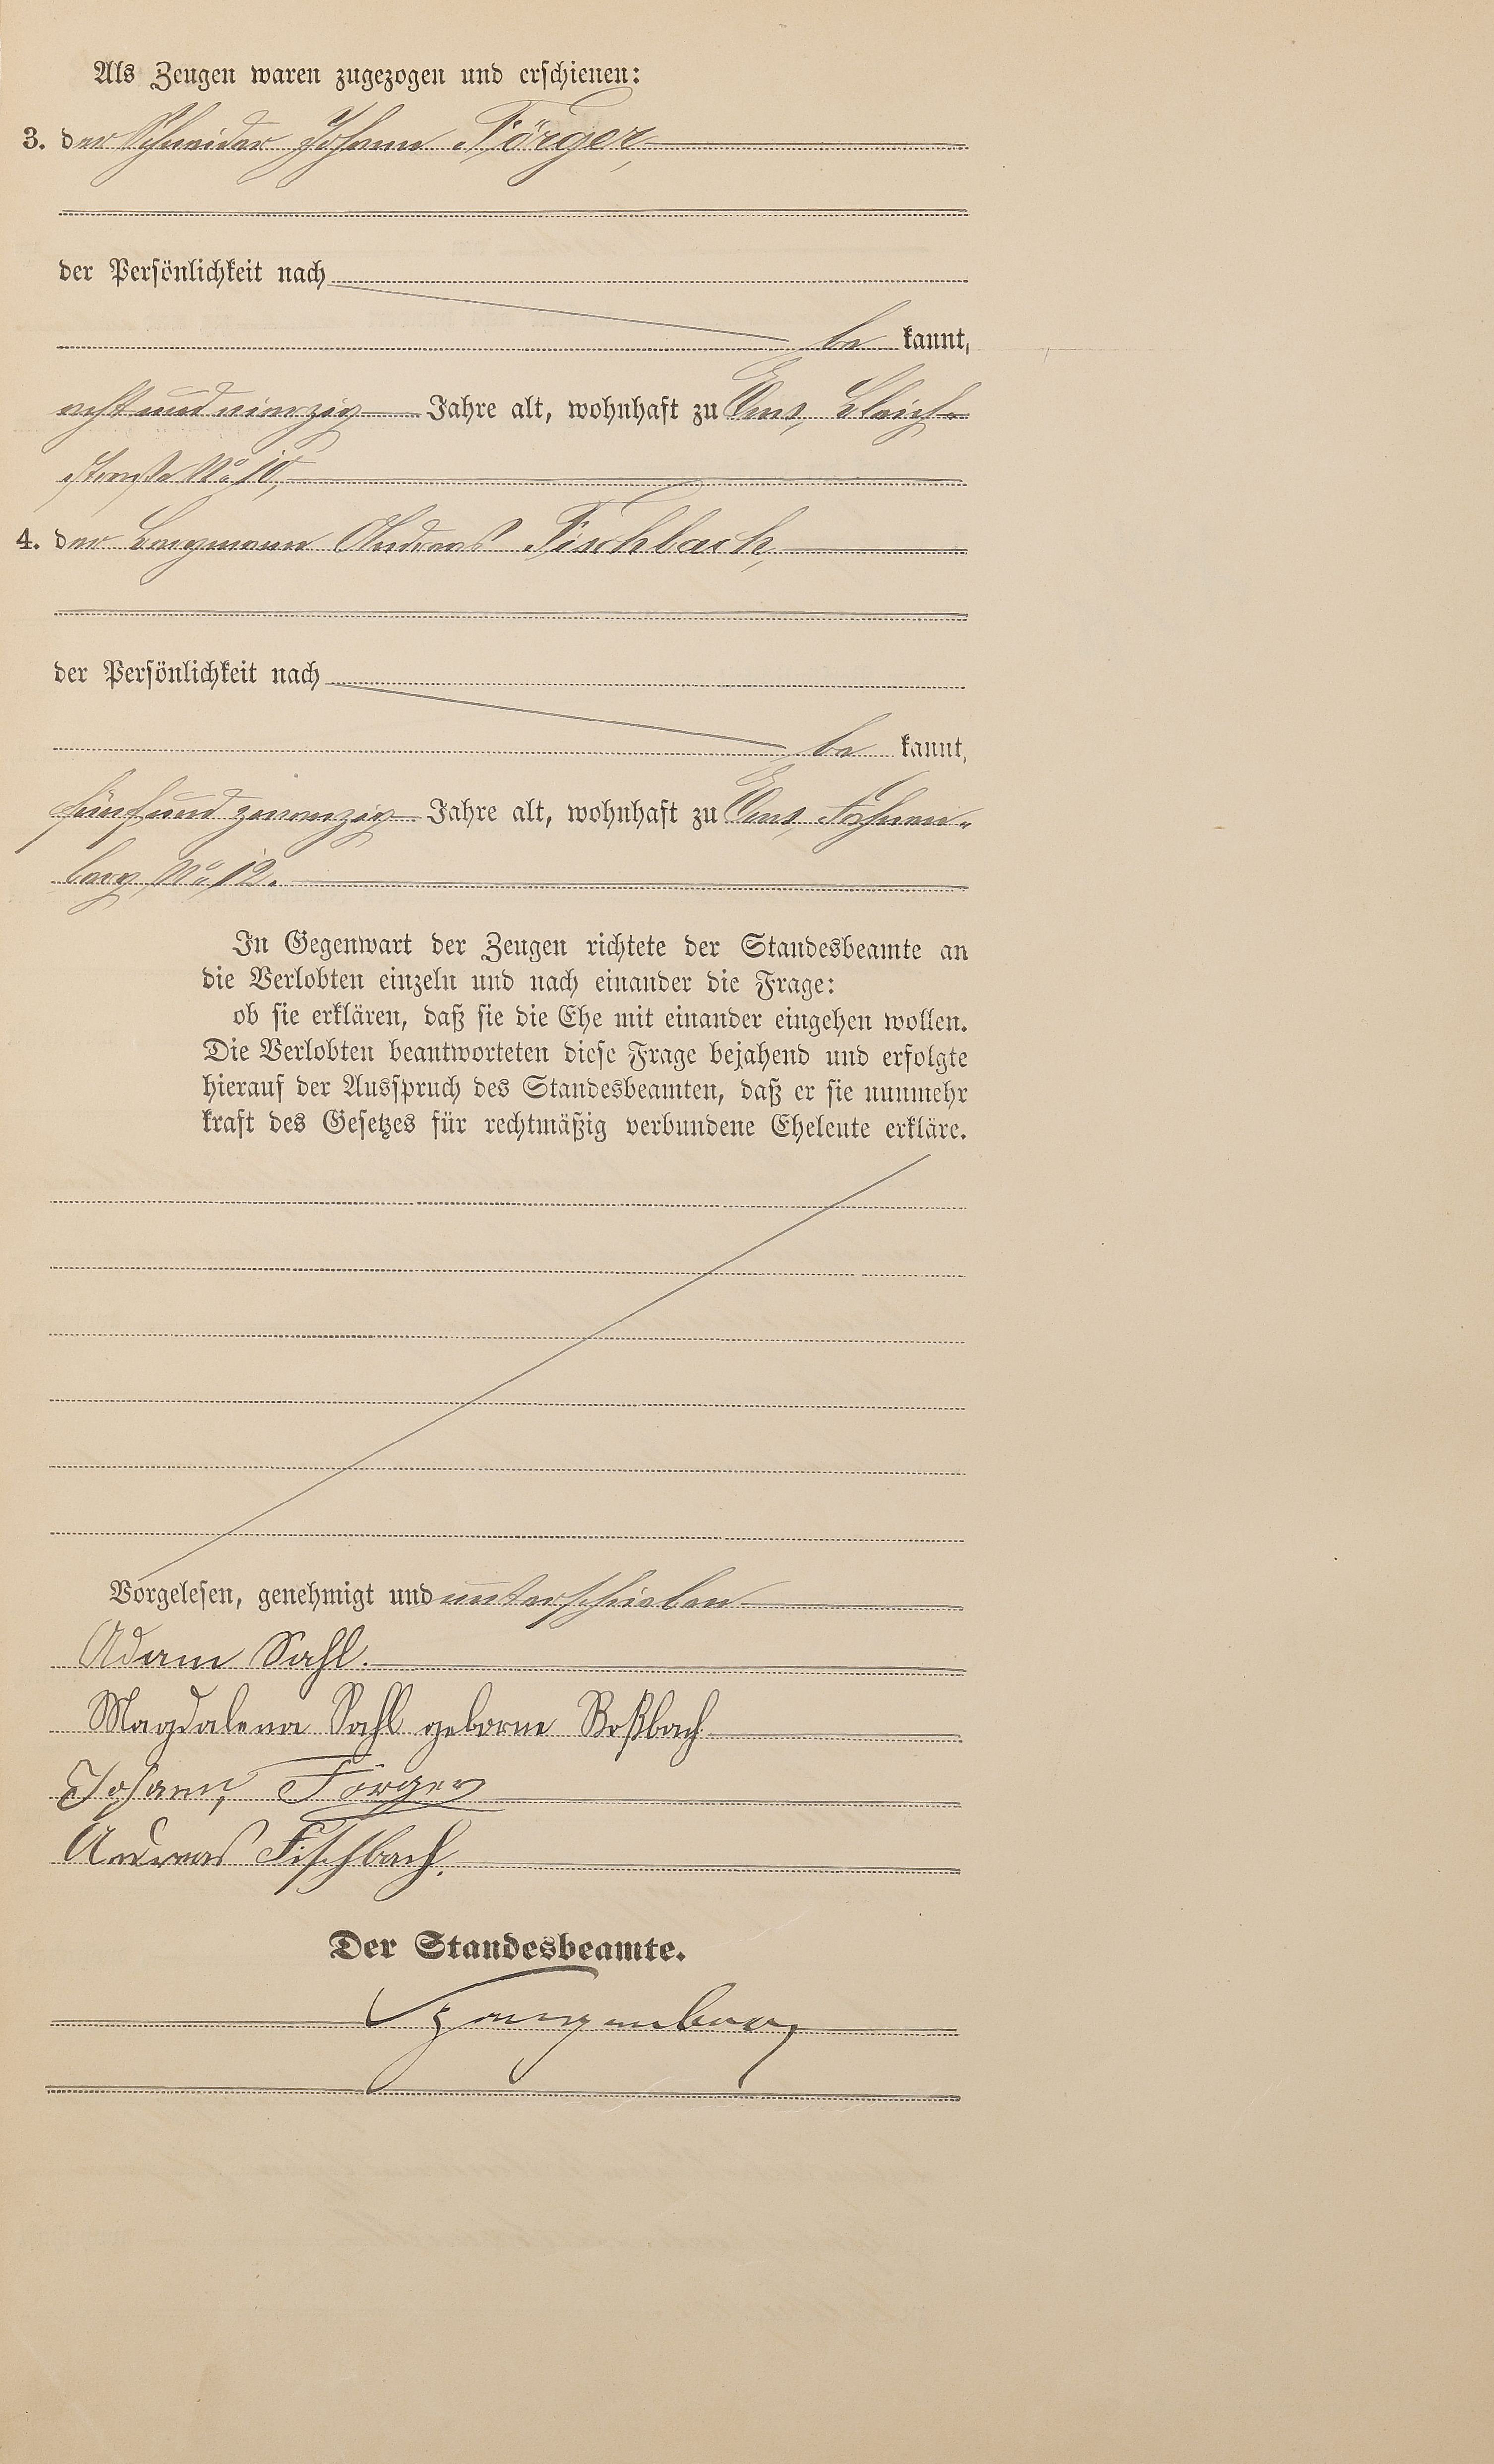 Als Zeugen waren zugezogen und erschienen:
3. der Schneider Johann Törger,
der Persönlichkeit nach
be kannt,
acht und vierzig Jahre alt, wohnhaft zu Ems, Bleich-
straße No 10,
4. der Bergmann Andreas Fischbach,
der Persönlichkeit nach
be kannt,
fünf und zwanzig Jahre alt, wohnhaft zu Ems,
berg No 12.
In Gegenwart der Zeugen richtete der Standesbeamte an
die Verlobten einzeln und nach einander die Frage:
ob sie erklären, daß sie die Ehe mit einander eingehen wollen.
Die Verlobten beantworteten diese Frage bejahend und erfolgte
hierauf der Ausspruch des Standesbeamten, daß er sie nunmehr
kraft des Gesetzes für rechtmäßig verbundene Eheleute erkläre.
Vorgelesen, genehmigt und unterschrieben
Adam Sahl.
Magdalena Sahl geborne Roßbach
Johann Törger
Andreas Fischbach.
Der Standesbeamte.